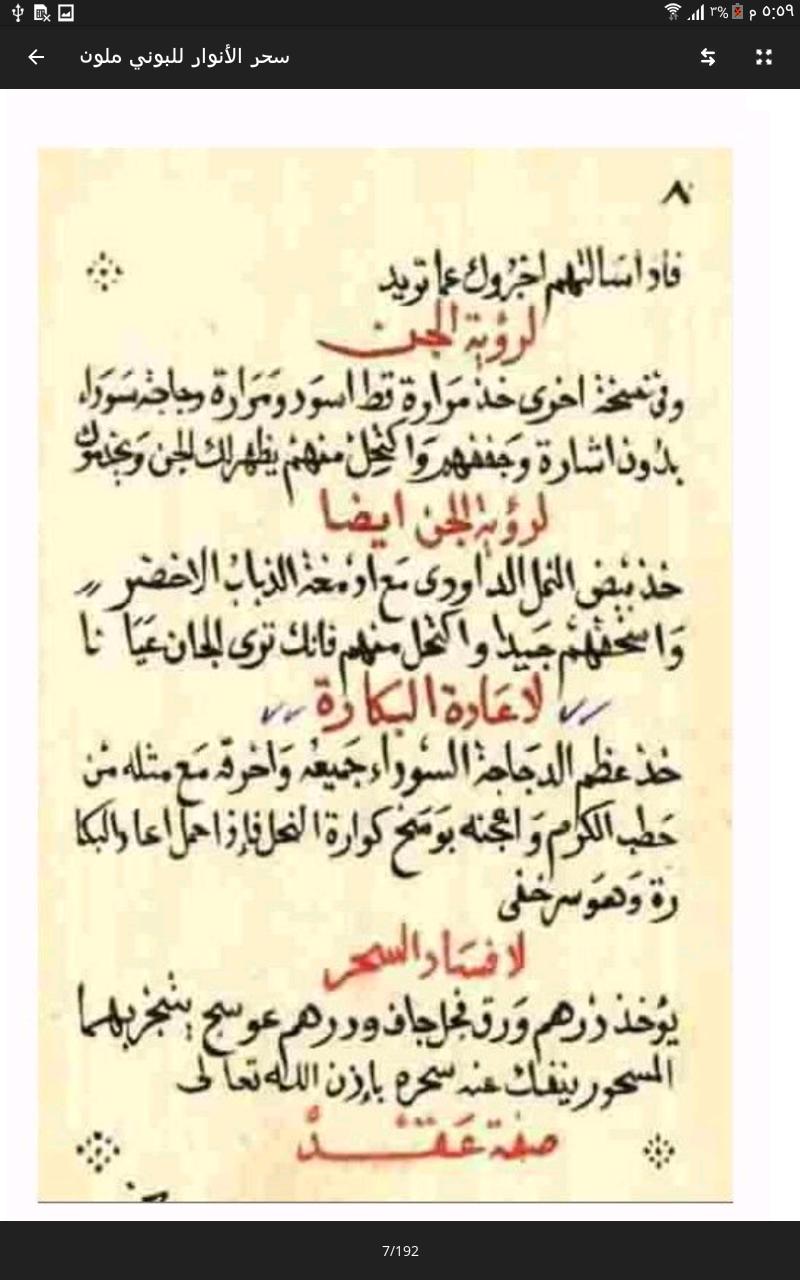 ٥:٥٩ م ٣%
سحر الأنوار للبوني ملون
٨
فاذا سالتهم اخبروك عما تريد
لرؤية الجن
وفي نسخة اخرى خذ مرارة قط اسود ومرارة دجاجة سوداء
بدون اشارة وجففهم واكتحل منهم يظهر لك الجن ويخدموك
لرؤية الجن ايضا
خذ بيض النمل الداودى مع ادمغة الذباب الاخضر
واسحقهم جيدا واكتحل منهم فانك ترى الجان عيانا
لاعادة البكارة
خذ عظم الدجاجة السوداء جميعه واحرقه مع مثله من
حطب الكرم واعجنه بوسخ كوارة النحل فإذا حمل اعاد البكا
رة وهو سر خفى
لافساد السحر
يؤخذ درهم ورق فجل جاف ودرهم عوسج يتبخر بهما
المسحور ينفك عنه سحره بإذن الله تعالى
صفة عقد
7/192